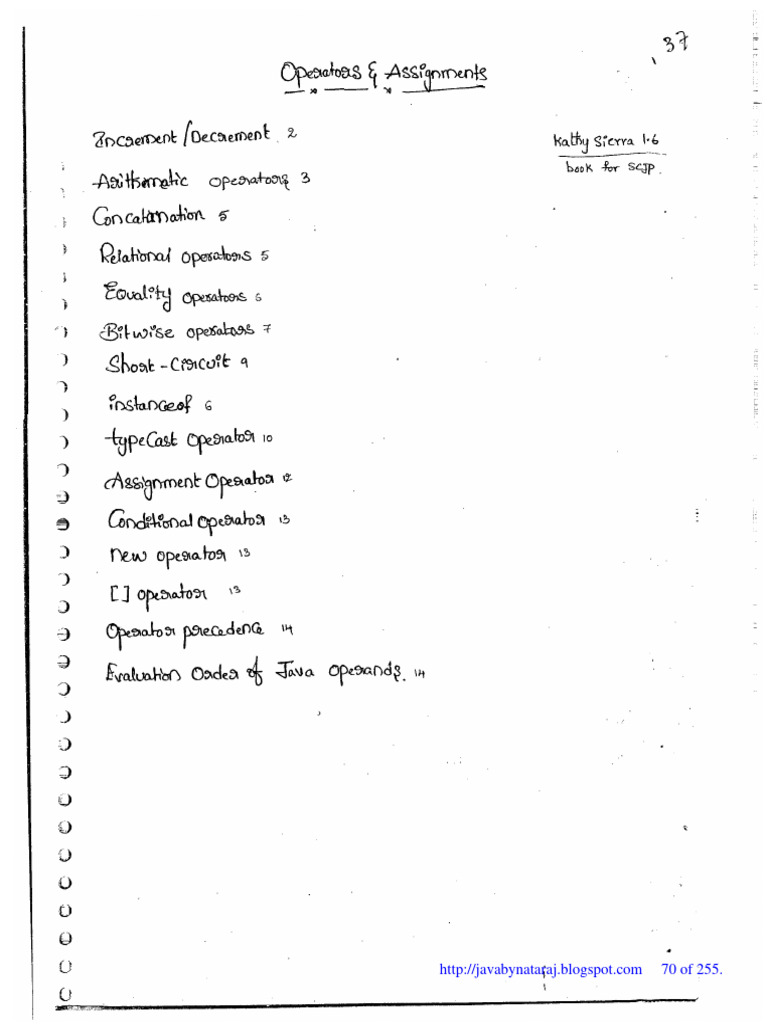 37
Operators & Assignments
Increment/Decrement 2
Kathy Sierra 1.6
book for SCJP.
Arithematic operators 3
Concatination 5
Relational operators 5
Equality operators 6
Bitwise operators 7
Short-Circuit 9
instanceof 6
typeCast Operator 10
Assignment Operator 12
Conditional operator 13
new operator 13
[] operator 13
Operator precedence 14
Evaluation Order of Java operands. 14
http://javabynataraj.blogspot.com 70 of 255.